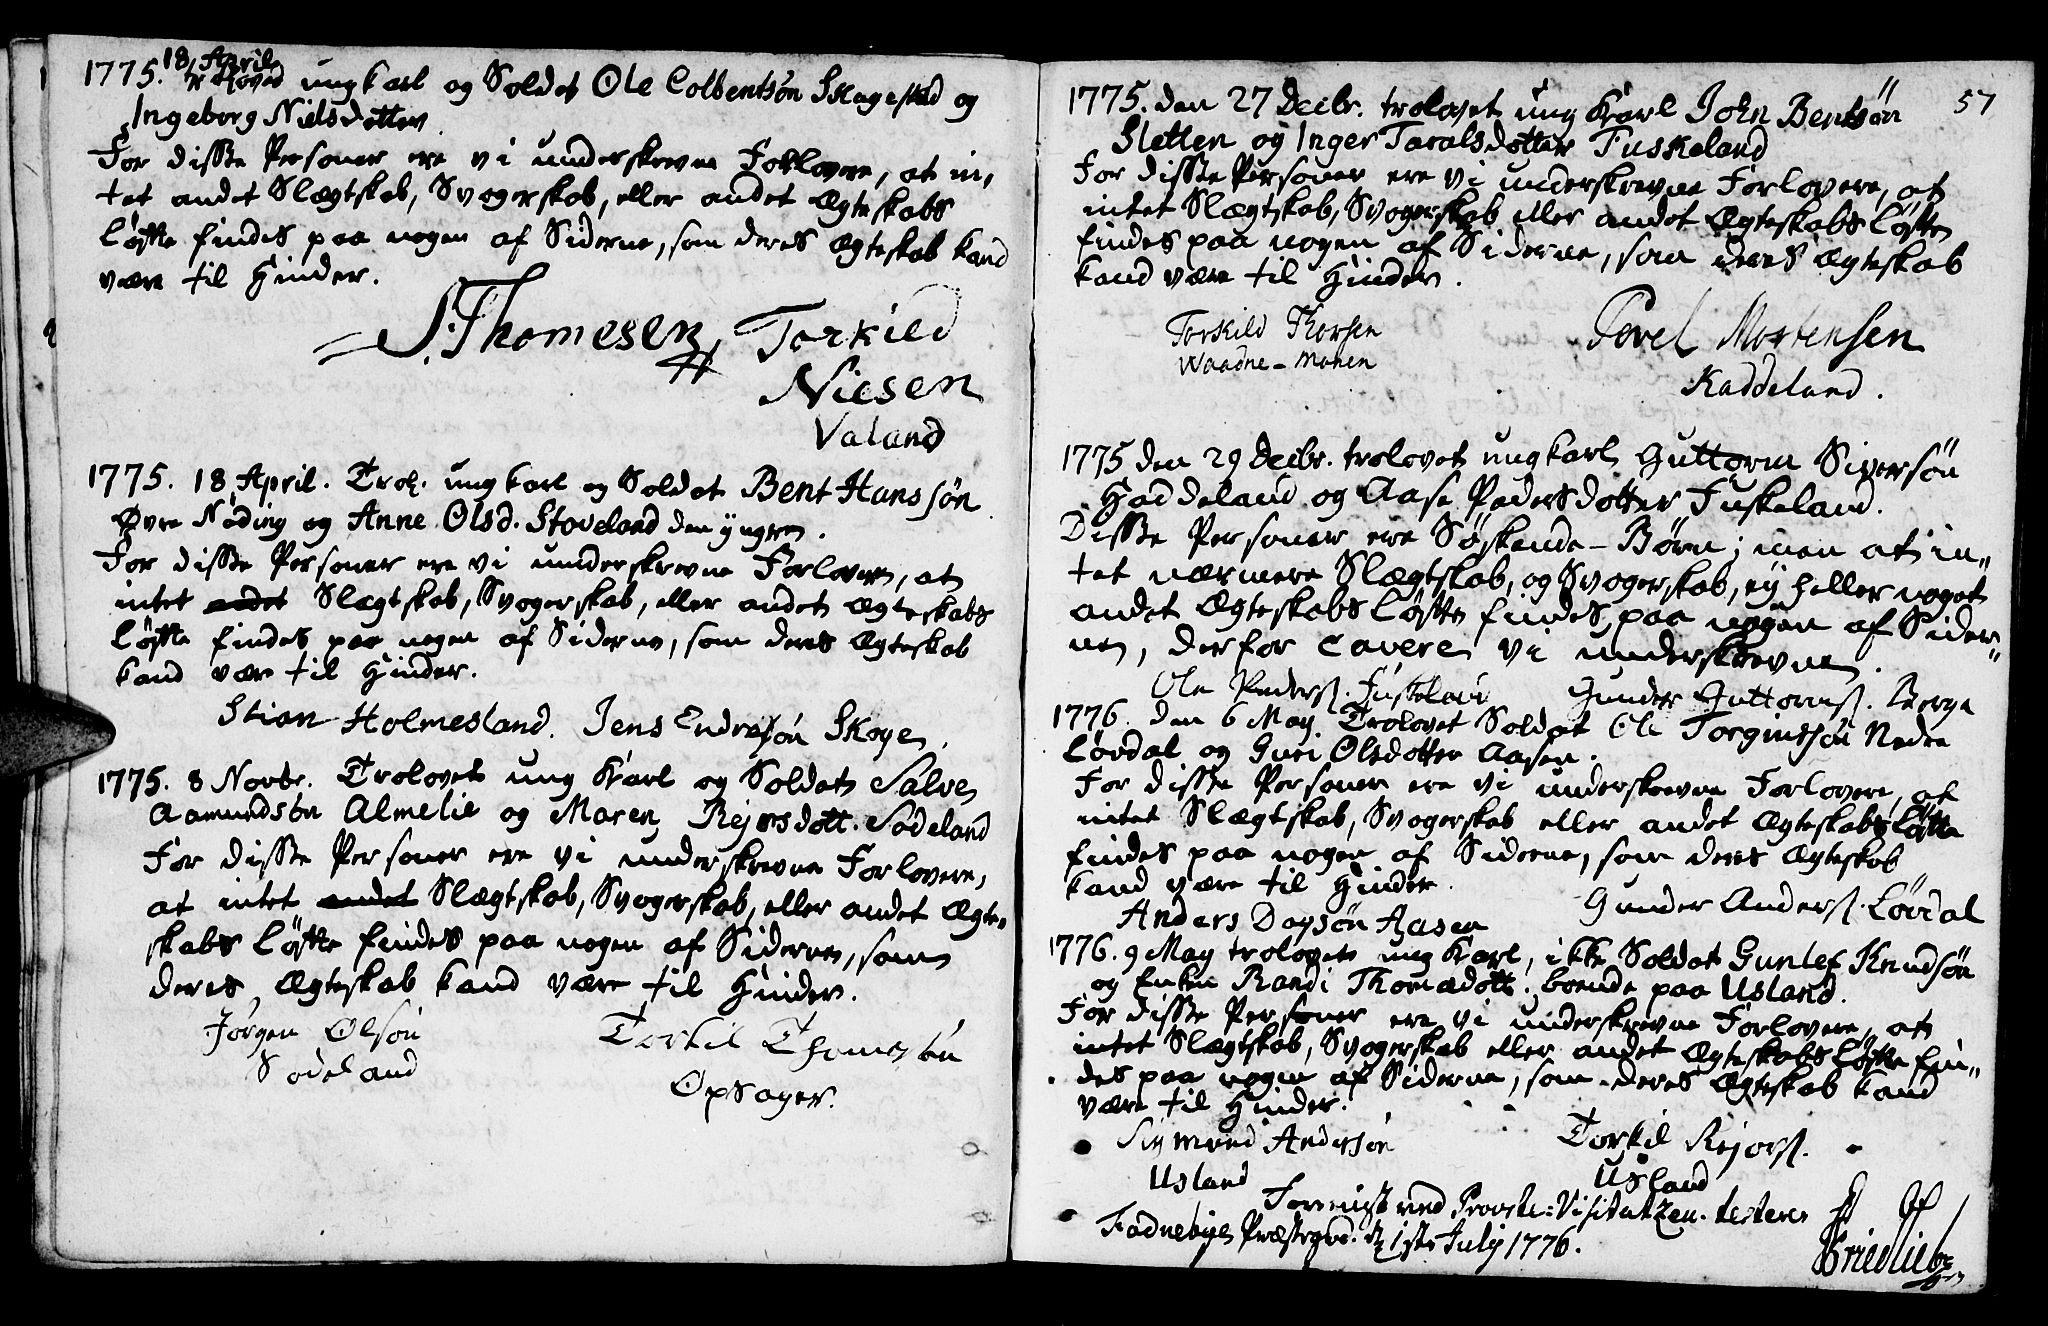 1775. 18 April
troloved ungkarl og Soldat Ole Colbentsøn Skagestad og
Ingeborg Nielsdotter.
For disse Personer ere vi underskrevne Forlovere, at in-
tet andet Slægtskab, Svogerskab, eller andet Ægteskabs
Løfte findes paa nogen af Siderne, som deres Ægteskab kand
være til Hinder.
Thomesen Torkild
Niesen
Valand
1775. 18 April. Trol. ungkarl og Soldat Bent Hanssøn
Øvre Nøding og Anne Olsd. Stoveland den yngre.
For disse Personer ere vi underskrevne Forlovere, at
intet andet Slægtskab, Svogerskab, eller andet Ægteskabs
Løfte findes paa nogen af Siderne, som deres Ægteskab
kand være til Hinder.
Stian Holmesland. Jens Endresøn Skoge
1775. 8 Novbr. Trolovet ung Karl og Soldat Salve
Aamundsøn Almelie og Maren Rejersdott. Sodeland
For disse Personer ere vi underskrevne Forlovere,
at intet andet Slægtskab, Svogerskab, eller andet Ægte-
skabs Løfte findes paa nogen af Siderne, som
deres Ægteskab kand være til Hinder.
Jørgen Olsøn Torkil Thomesøn
Sodeland Opsager.
57
1775. den 27 Decbr. trolovet ung Karl John Bentsøn
Sletten og Inger Taralsdotter Fuskeland
For disse Personer ere vi underskrevne Forlovere, at
intet Slægtskab, Svogerskab eller andet Ægteskabs Løfte
findes paa nogen af Siderne, som deres Ægteskab
kand være til Hinder.
Torkild Thorsen Povel Mortensen
Waadne-Monen Kaddeland.
1775 den 29 Decbr. trolovet ungkarl Guttorm Siversøn
Haddeland og Aase Pedersdotter Fuskeland.
Disse Personer ere Søskende-Børn; men at in-
tet nærmere Slægtskab, og Svogerskab, ej heller noget
andet Ægteskabs Løfte findes paa nogen af Sider-
ne, derfor cavere vi underskrevne.
Ole Peders. Fuskeland Gunder Guttorms. Berge
1776. den 6 May Trolovet Soldat Ole Torgiussøn Nedre
Løvdal og Guri Olsdotter Aasen.
For disse Personer ere vi underskrevne Forlovere, at
intet Slægtskab, Svogerskab eller andet Ægteskabs Løfte
findes paa nogen af Siderne, som deres Ægteskab
kand være til Hinder.
Anders Dagsøn Aasen Gunder Anders. Løvdal
1776. 9 May trolovet ung Karl, ikke Soldat Gunlef Knudsøn
og Enken Randi Thomædott. boende paa Usland.
For disse Personer ere vi underskrevne Forlovere, at
intet Slægtskab, Svogerskab eller andet Ægteskabs Løfte fin-
des paa nogen af Siderne, som deres Ægteskab kand
være til Hinder.
Sigmund Andersøn Torkil Rejers.
Usland Usland
Foreviist ved Provste-Visitatzen testerer
Fodnebye Præstegrd. d. 1ste July 1776.